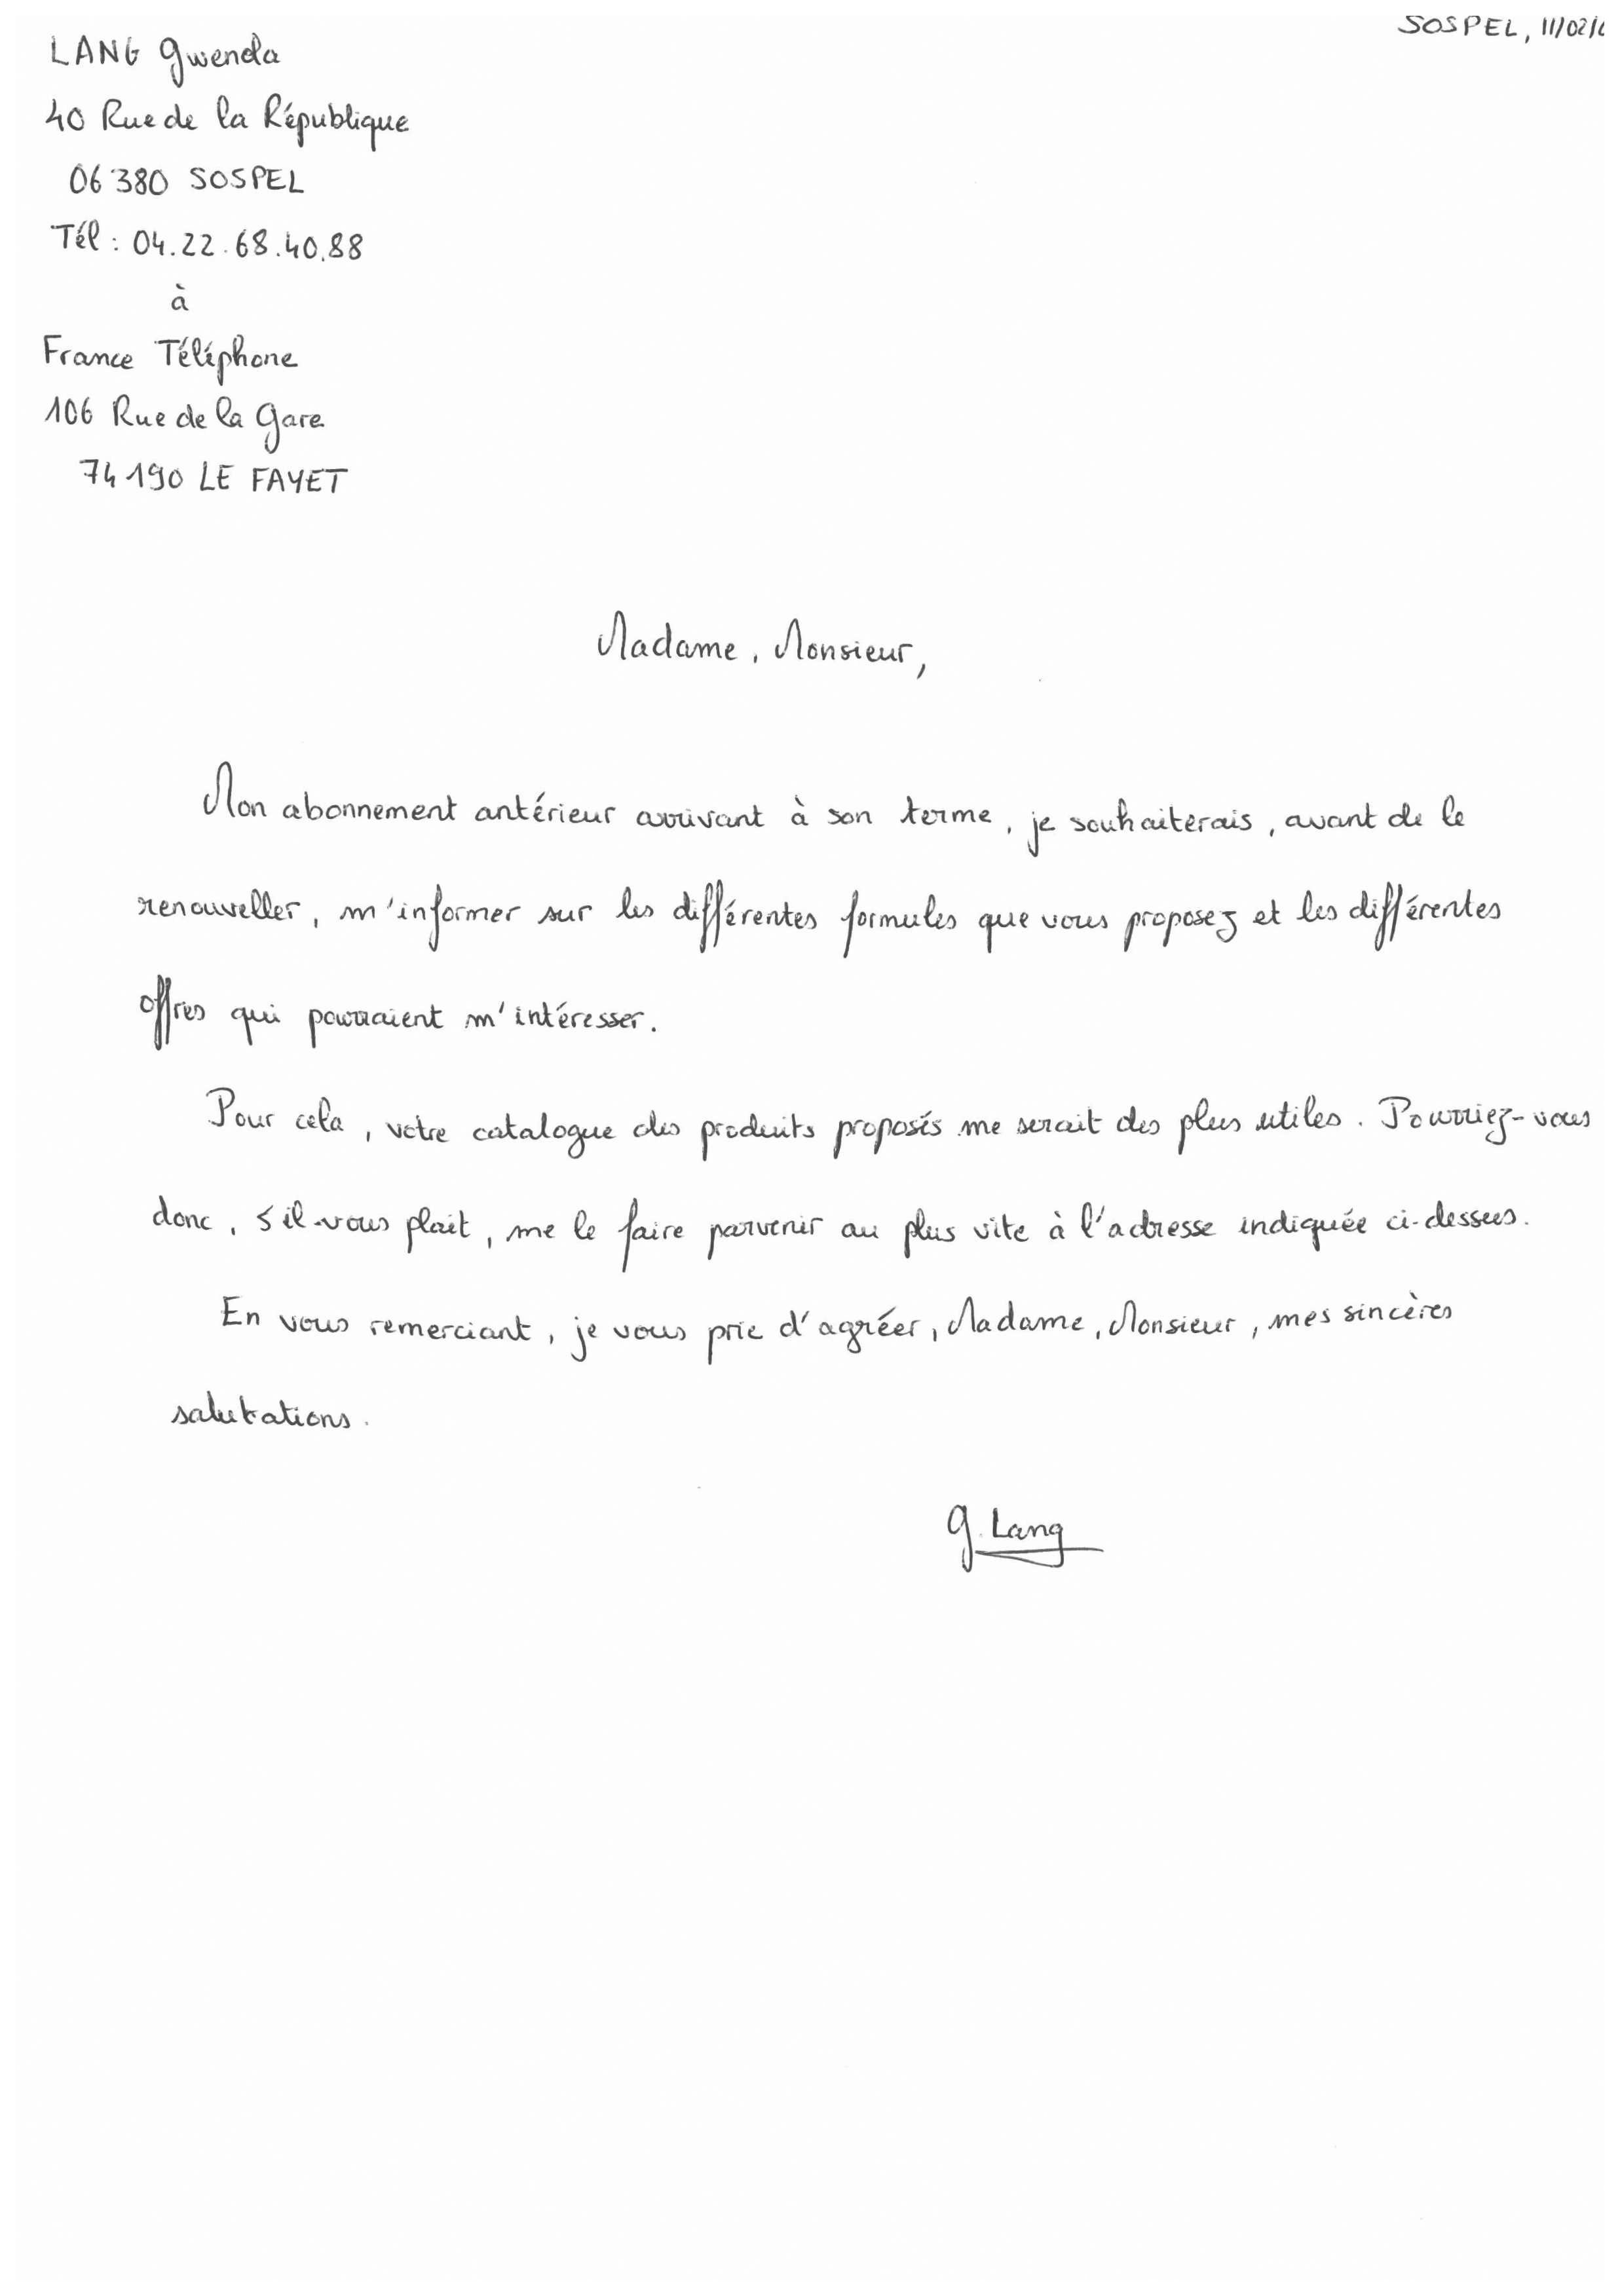 SOSPEL, 11/02/
LANG Gwenda
40 Rue de la République
06380 SOSPEL
Tél : 04.22.68.40.88
à
France Téléphone
106 Rue de la Gare
74190 LE FAYET
Madame, Monsieur,
Mon abonnement antérieur arrivant à son terme, je souhaiterais, avant de le
renouveller, m'informer sur les différentes formules que vous proposez et les différentes
offres qui pourraient m'intéresser.
Pour cela, votre catalogue des produits proposés me serait des plus utiles. Pourriez-vous
donc, s'il-vous plait, me le faire parvenir au plus vite à l'adresse indiquée ci-dessus.
En vous remerciant, je vous prie d'agréer, Madame, Monsieur, mes sincères
salutations.
G. Lang